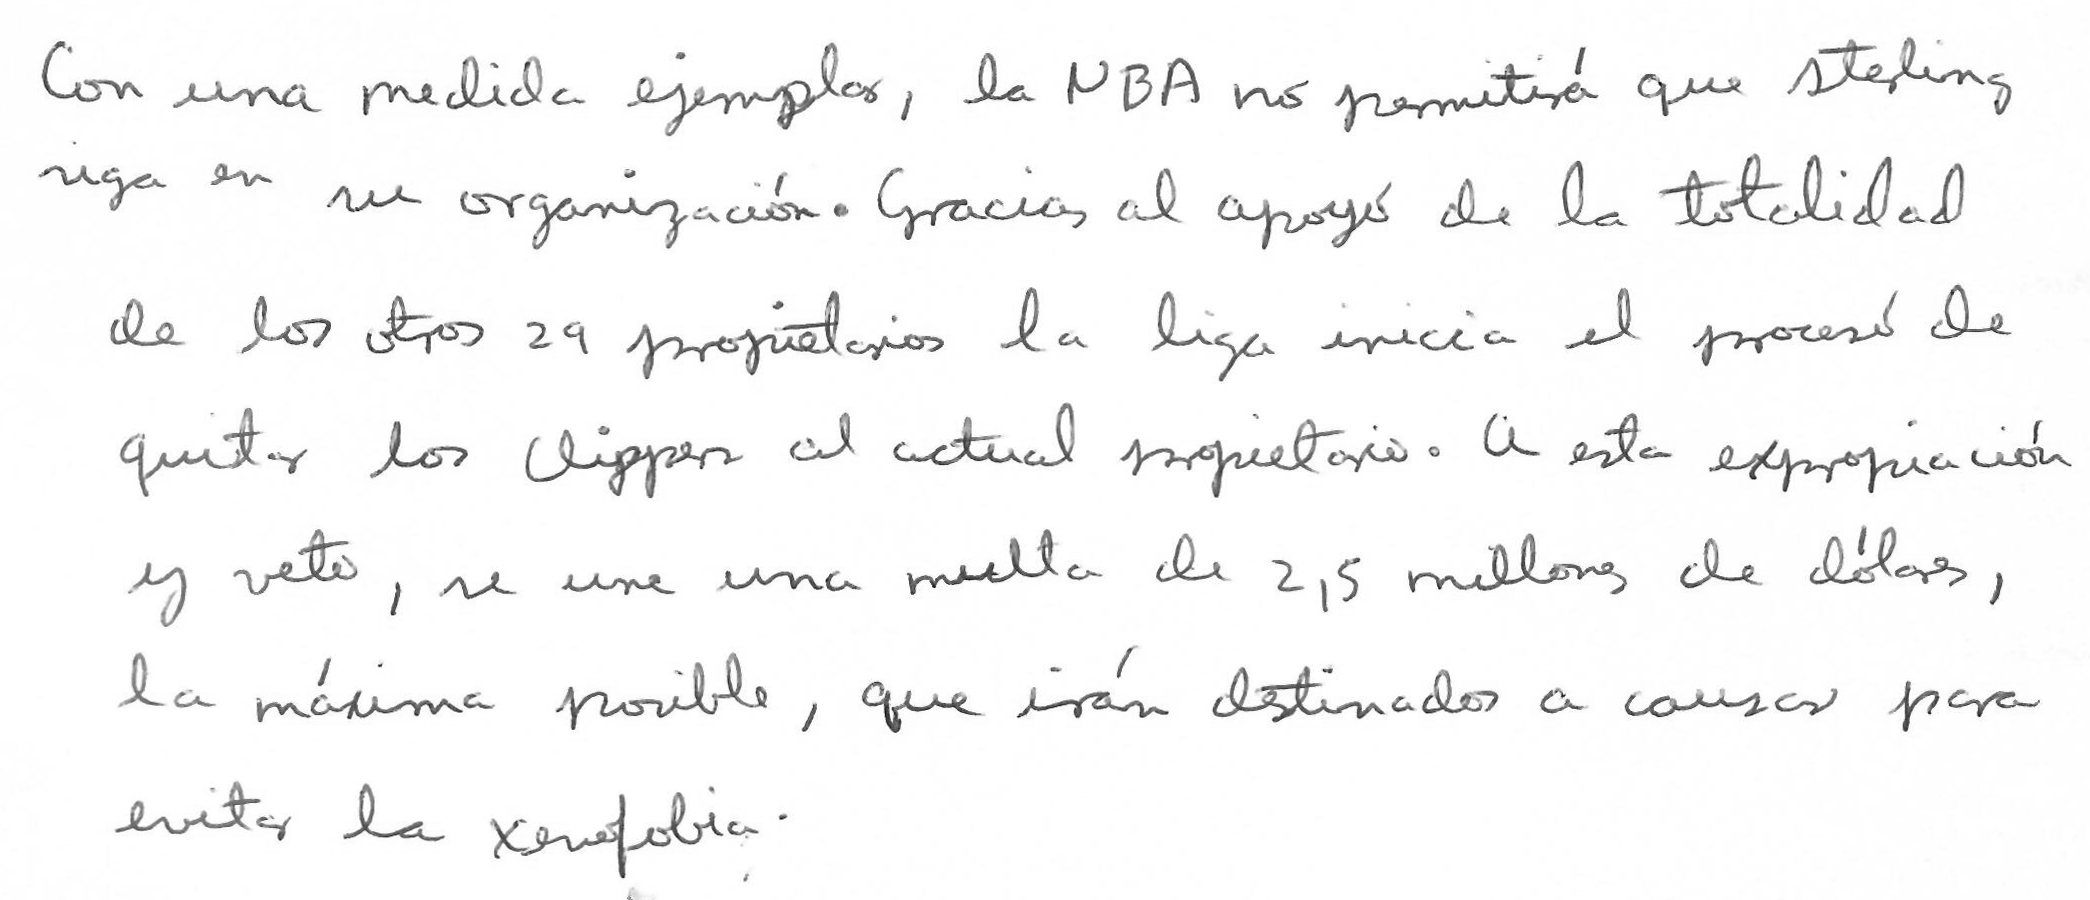 Con una medida ejemplar, la NBA no permitirá que sterling
siga en su organización. Gracias al apoyo de la totalidad
de los otros 29 propietarios la liga inicia el proceso de
quitar los Clippers al actual propietario. A esta expropiación
y veto, se une una multa de 2,5 millones de dólares,
la máxima posible, que irán destinados a causas para
evitar la xenofobia.